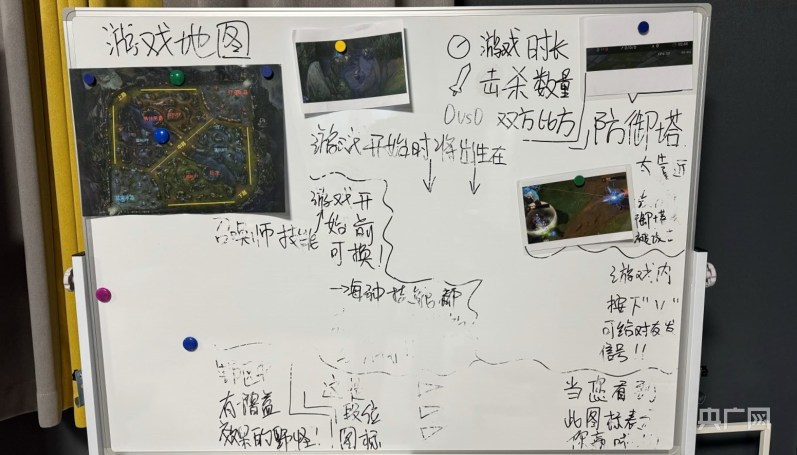 游戏地图
游戏时长
击杀数量
0vs0 双方比方
防御塔
游戏开始时将出生在
太靠近
御塔
被攻击
召唤师技能
游戏开
始前
可换!
→每种技能都
游戏内
按下"V"
可给对友发
信号!!
有增益
效果的野怪!
这是
段位
图标
当您看到
此图标表示
你
央广网